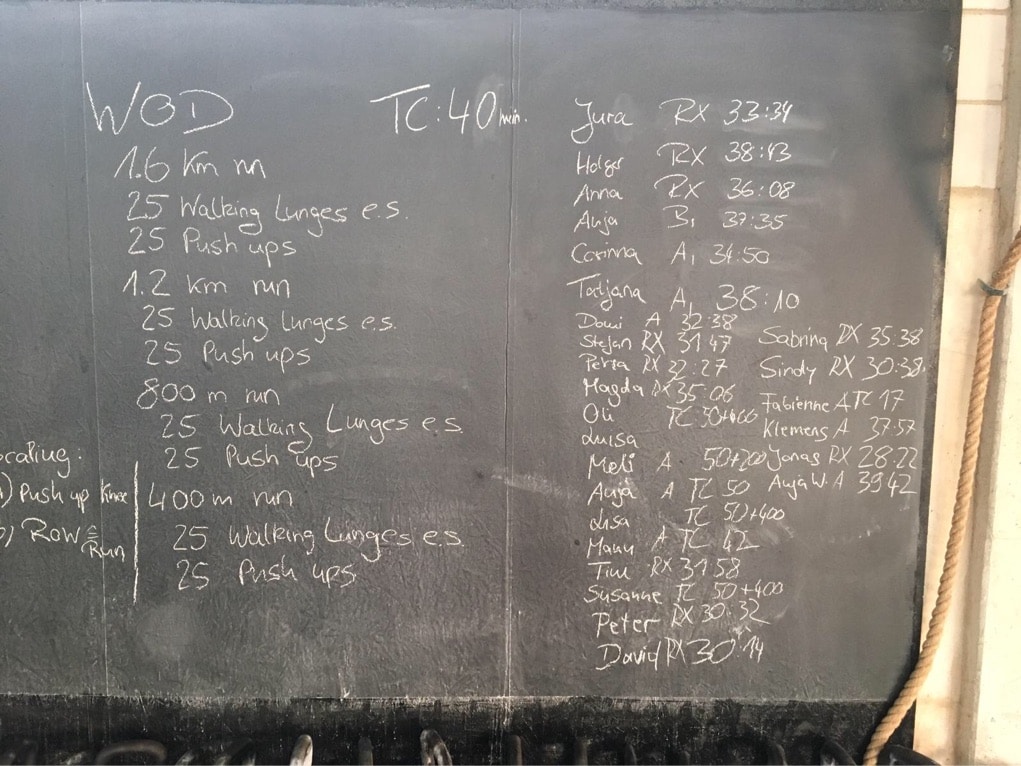 WOD TC: 40 min.
1.6 Km run
25 Walking Lunges e.s.
25 Push ups
1.2 Km run
25 Walking Lunges e.s.
25 Push ups
800 m run
25 Walking Lunges e.s.
25 Push ups
400 m run
25 Walking Lunges e.s.
25 Push ups
caling:
) Push up Knee
) Row ≙ Run
Jura RX 33:34
Holger RX 38:43
Anna RX 36:08
Anja B, 37:35
Corinna A, 34:50
Tatjana A, 38:10
Domi A 32:38
Stefan RX 31:47
Petra RX :27
Magda RX 35:06
Oli TC 50+400
Luisa
Meli A 50+200
Anja A TC 50
Lisa TC 50+400
Manu A TC 42
Tim RX 31:58
Susanne TC 50+400
Peter RX 30:32
David RX 30:14
Sabrina RX 35:38
Sindy RX 30:38
Fabienne A TC 17
Klemens A 37:57
Jonas RX 28:22
Anja W. A 39 42